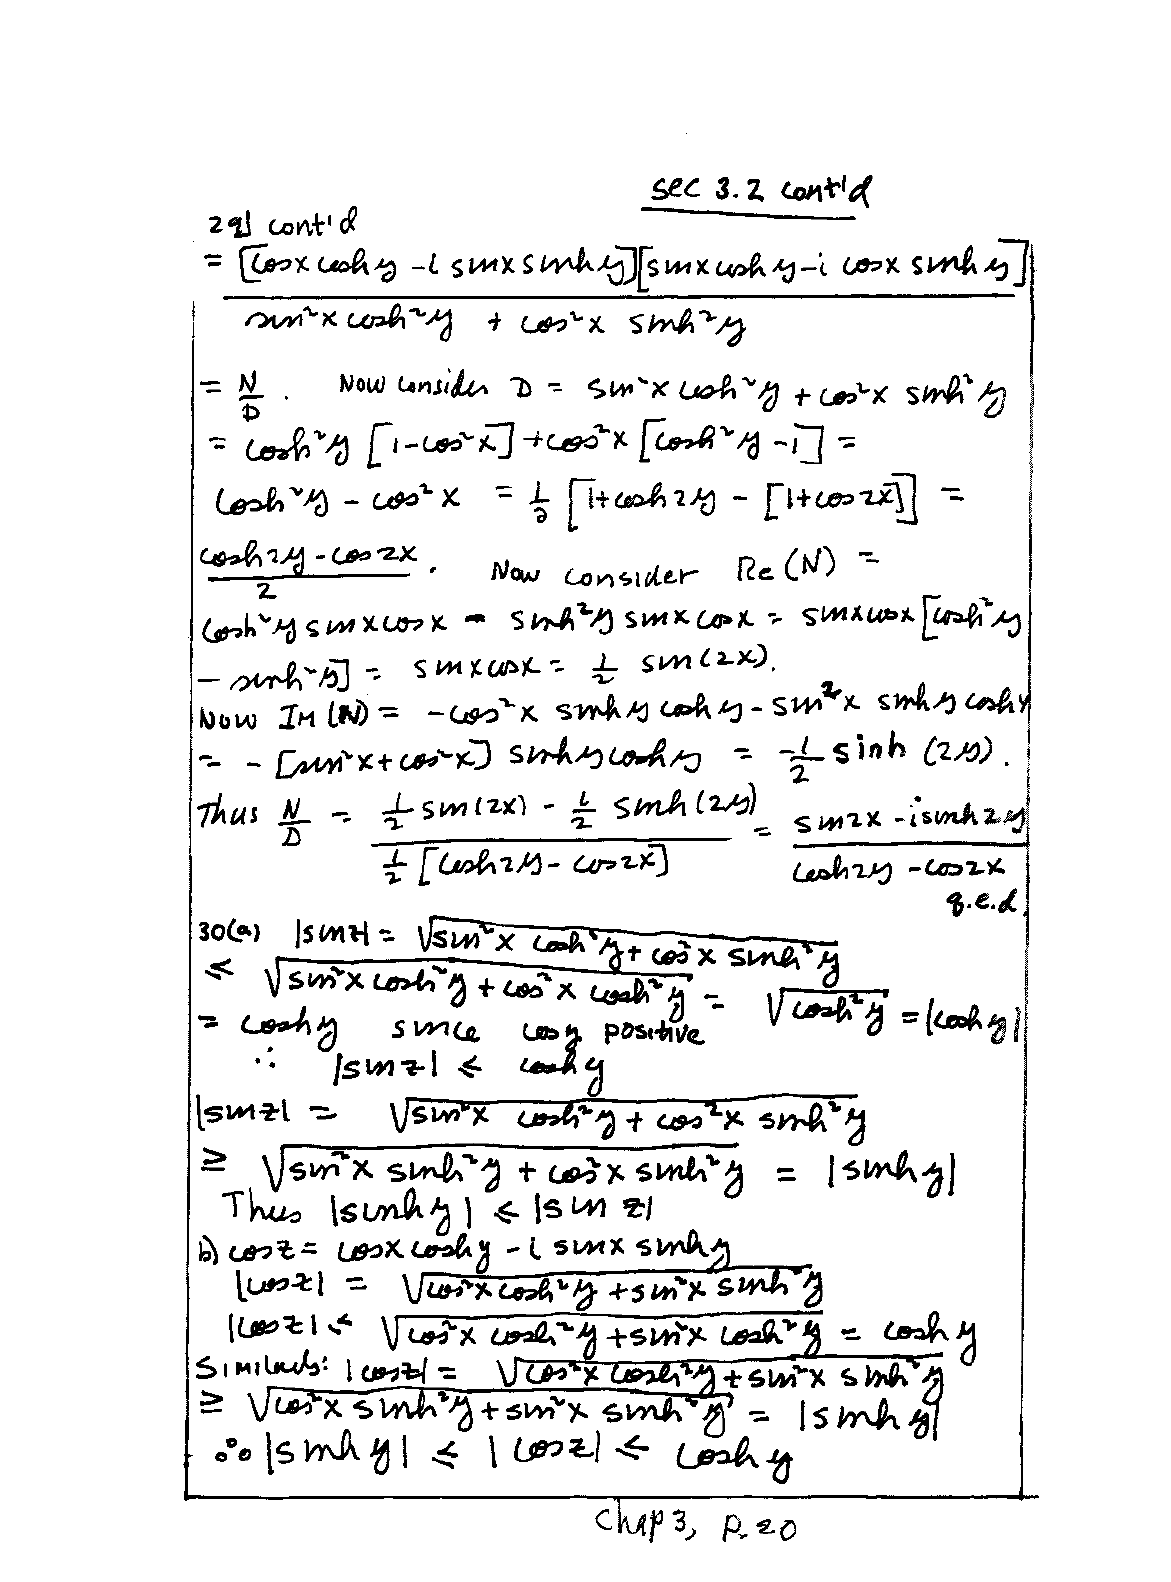 sec 3.2 cont'd
29] cont'd
= [cosx coshy - i sinx sinhy][sinx coshy - i cosx sinhy]
sin²x cosh²y + cos²x sinh²y
= N/D . Now consider D = sin²x cosh²y + cos²x sinh²y
= cosh²y [1-cos²x] + cos²x [cosh²y -1] =
cosh²y - cos²x = 1/2 [1+cosh2y - [1+cos2x]] =
(cosh2y - cos2x)/2 . Now consider Re(N) =
cosh²y sinx cosx - sinh²y sinx cosx = sinx cosx [cosh²y
- sinh²y] = sinx cosx = 1/2 sin(2x).
Now Im(N) = -cos²x sinhy coshy - sin²x sinhy coshy
= - [sin²x + cos²x] sinhy coshy = -1/2 sinh (2y).
Thus N/D = (1/2 sin(2x) - i/2 sinh(2y)) / (1/2 [cosh2y - cos2x]) = (sin2x - i sinh2y) / (cosh2y - cos2x)
q.e.d.
30(a) |sinz| = √(sin²x cosh²y + cos²x sinh²y)
≤ √(sin²x cosh²y + cos²x cosh²y) = √(cosh²y) = |coshy|
= coshy since cosy positive
∴ |sinz| ≤ coshy
|sinz| = √(sin²x cosh²y + cos²x sinh²y)
≥ √(sin²x sinh²y + cos²x sinh²y) = |sinhy|
Thus |sinhy| ≤ |sin z|
b) cosz = cosx coshy - i sinx sinhy
|cosz| = √(cos²x cosh²y + sin²x sinh²y)
|cosz| ≤ √(cos²x cosh²y + sin²x cosh²y) = coshy
Similarly: |cosz| = √(cos²x cosh²y + sin²x sinh²y)
≥ √(cos²x sinh²y + sin²x sinh²y) = |sinhy|
∴ |sinhy| ≤ |cosz| ≤ coshy
Chap 3, p. 20